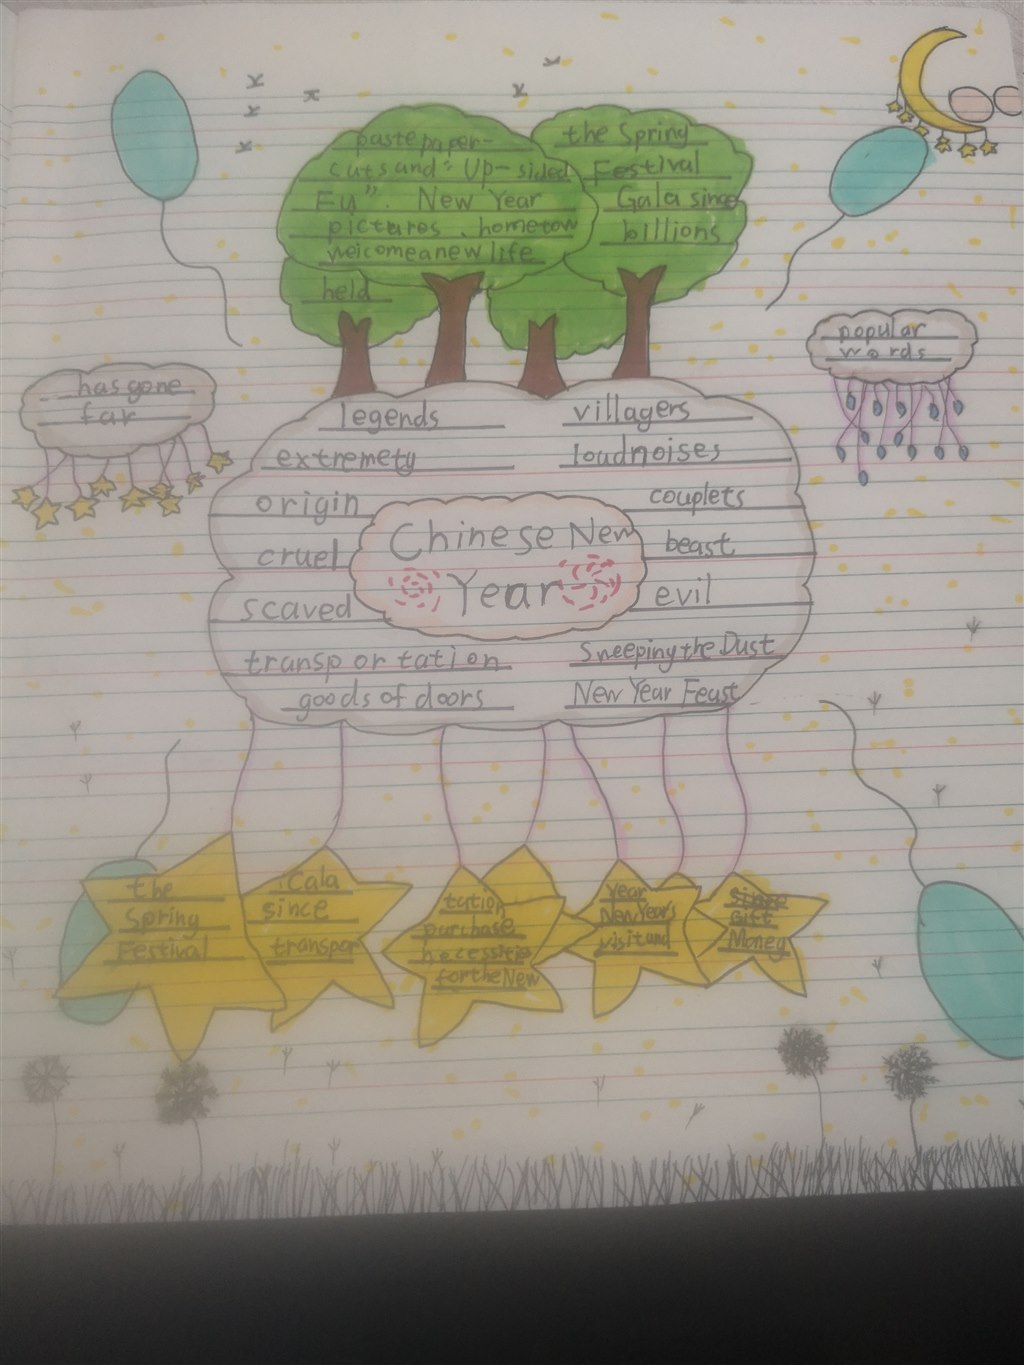 paste paper-
cuts and "Up-sided
Fu". New Year
pictures、hometow
welcomeanew life
held
the Spring
Festival
Gala since
billions
popular
words
has gone
far
legends
extremety
origin
cruel
scaved
transportation
goods of doors
villagers
loudnoises
couplets
beast
evil
Sneeping the Dust
New Year Feast
Chinese New
Year
the
Spring
Festival
Cala
since
transpor
tation
purchase
necessitie
forthe New
Year
New Year's
visitand
Gift
Money